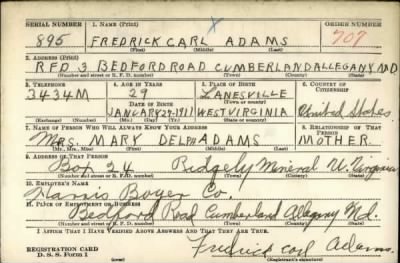 SERIAL NUMBER 1. NAME (Print) ORDER NUMBER
895 FREDRICK CARL ADAMS 707
(First) (Middle) (Last)
2. ADDRESS (Print)
RFD 3 BEDFORD ROAD CUMBERLAND ALLEGANY MD
(Number and street or R. F. D. number) (Town) (County) (State)
3. TELEPHONE 4. AGE IN YEARS 5. PLACE OF BIRTH 6. COUNTRY OF CITIZENSHIP
3434M 29 ZANESVILLE
DATE OF BIRTH (Town or county)
JANUARY 27-1911 WEST VIRGINIA United States
(Exchange) (Number) (Mo.) (Day) (Yr.) (State or country)
7. NAME OF PERSON WHO WILL ALWAYS KNOW YOUR ADDRESS 8. RELATIONSHIP OF THAT PERSON
MRS. MARY DELPH ADAMS MOTHER
(Mr., Mrs., Miss) (First) (Middle) (Last)
9. ADDRESS OF THAT PERSON
Box 24 Ridgely Mineral W. Virginia
(Number and street or R. F. D. number) (Town) (County) (State)
10. EMPLOYER'S NAME
Boyer Co.
11. PLACE OF EMPLOYMENT OR BUSINESS
Bedford Road Cumberland Allegany Md.
(Number and street or R. F. D. number) (Town) (County) (State)
I AFFIRM THAT I HAVE VERIFIED ABOVE ANSWERS AND THAT THEY ARE TRUE.
REGISTRATION CARD
D. S. S. Form 1
Fredrick Carl Adams.